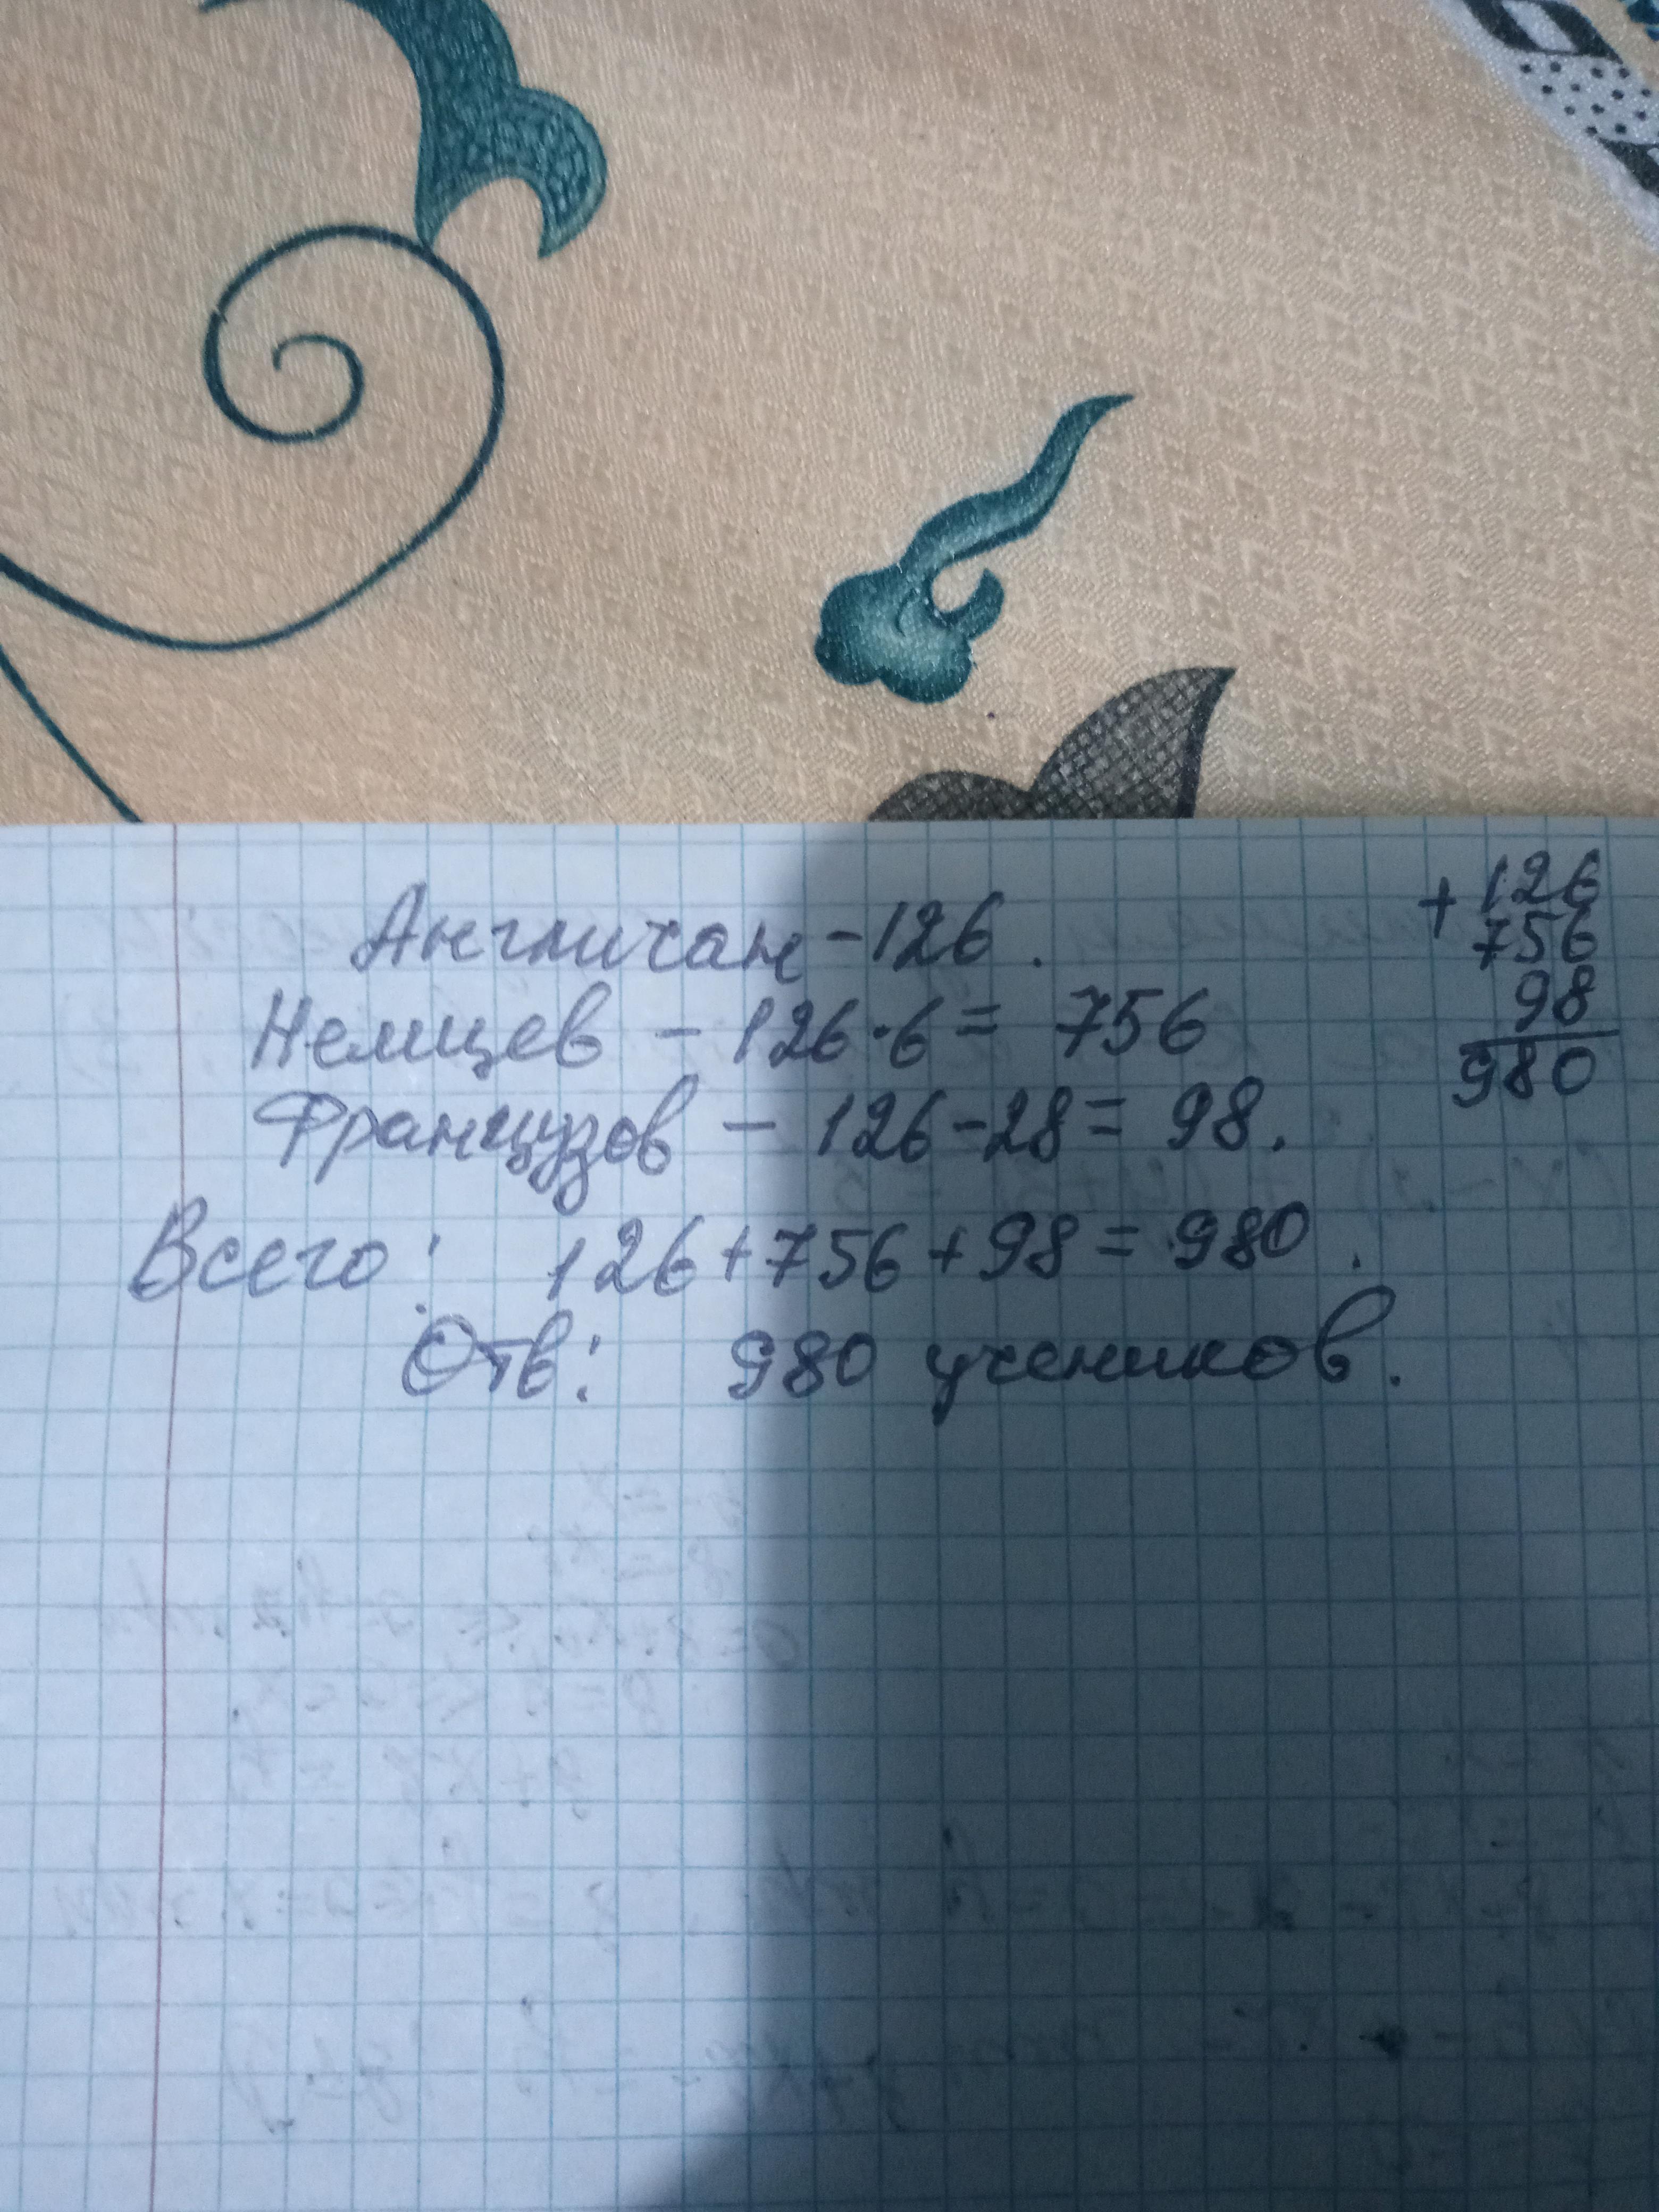 Англичан - 126.
Немцев - 126·6 = 756
Французов - 126-28 = 98.
Всего: 126+756+98 = 980.
Отв: 980 учеников.
+ 126
756
98
980